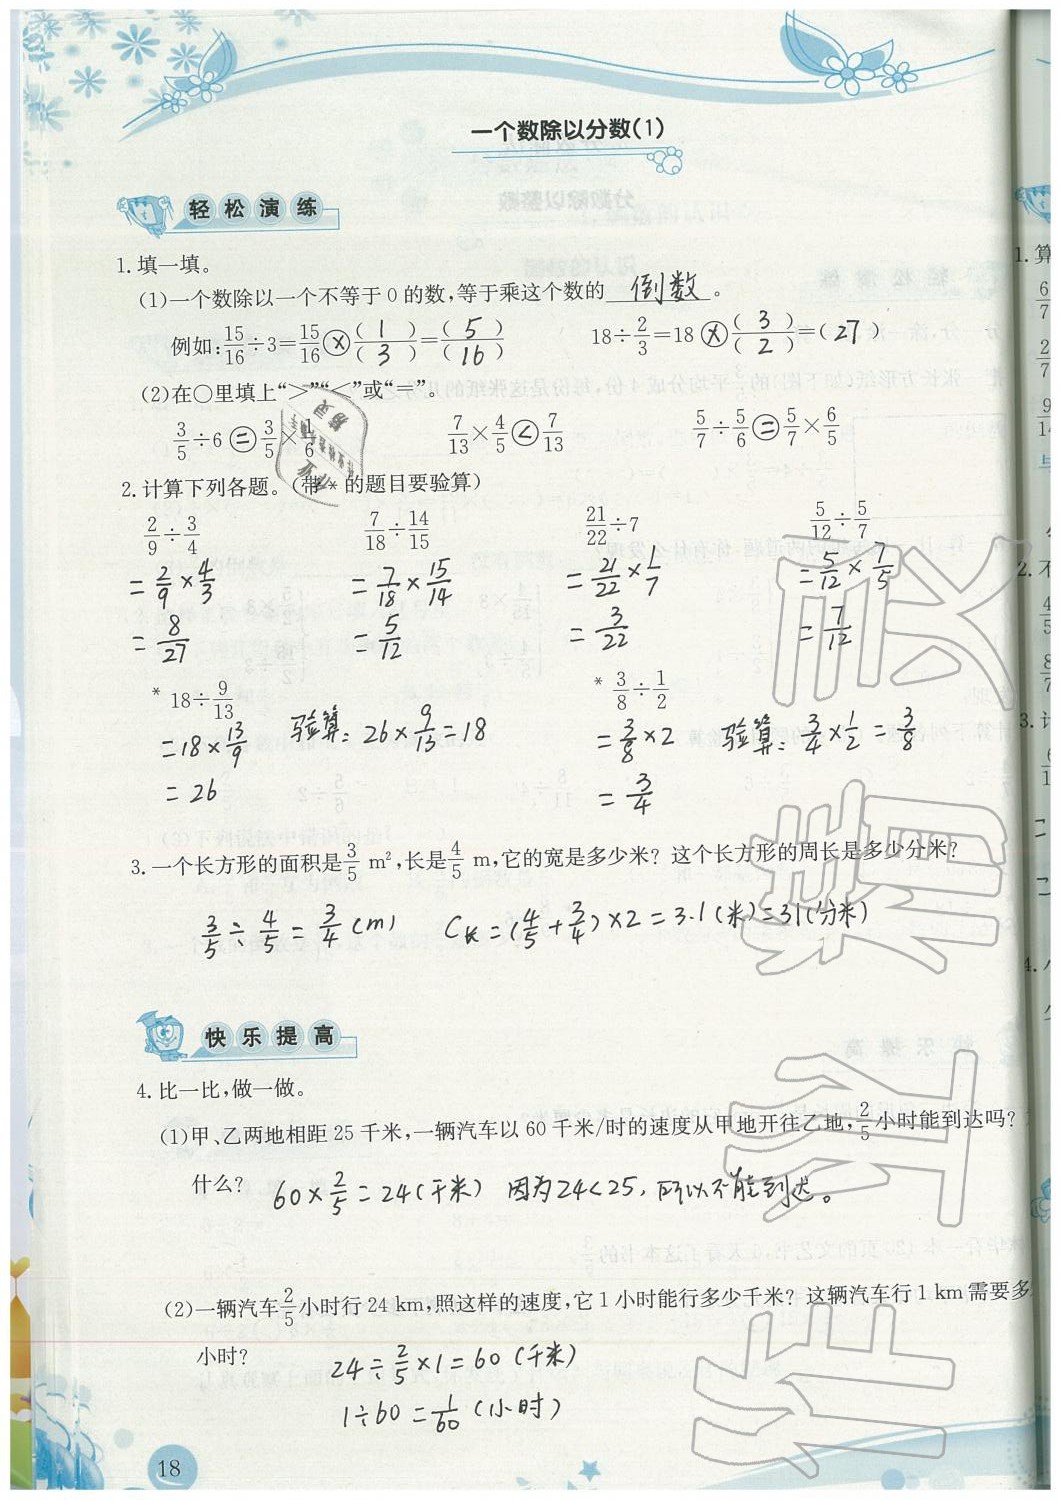 一个数除以分数(1)
轻松演练
1. 填一填。
(1)一个数除以一个不等于0的数,等于乘这个数的 倒数 。
例如:15/16÷3=15/16⊗(1)/(3)=(5)/(16) 18÷2/3=18⊗(3)/(2)=(27)
(2)在○里填上“>”“<”或“=”。
3/5÷6 = 3/5×1/6 7/13×4/5 < 7/13 5/7÷5/6 = 5/7×6/5
2. 计算下列各题。(带*的题目要验算)
2/9÷3/4 7/18÷14/15 21/22÷7 5/12÷5/7
=2/9×4/3 =7/18×15/14 =21/22×1/7 =5/12×7/5
=8/27 =5/12 =3/22 =7/12
*18÷9/13 *3/8÷1/2
=18×13/9 验算:26×9/13=18 =3/8×2 验算:3/4×1/2=3/8
=26 =3/4
3. 一个长方形的面积是3/5 m²,长是4/5 m,它的宽是多少米? 这个长方形的周长是多少分米?
3/5÷4/5=3/4(m) C长=(4/5+3/4)×2=3.1(米)=31(分米)
快乐提高
4. 比一比,做一做。
(1)甲、乙两地相距25千米,一辆汽车以60千米/时的速度从甲地开往乙地,2/5小时能到达吗?
什么? 60×2/5=24(千米) 因为24<25,所以不能到达。
(2)一辆汽车2/5小时行24 km,照这样的速度,它1小时能行多少千米? 这辆汽车行1 km需要多
小时? 24÷2/5×1=60(千米)
1÷60=1/60(小时)
18